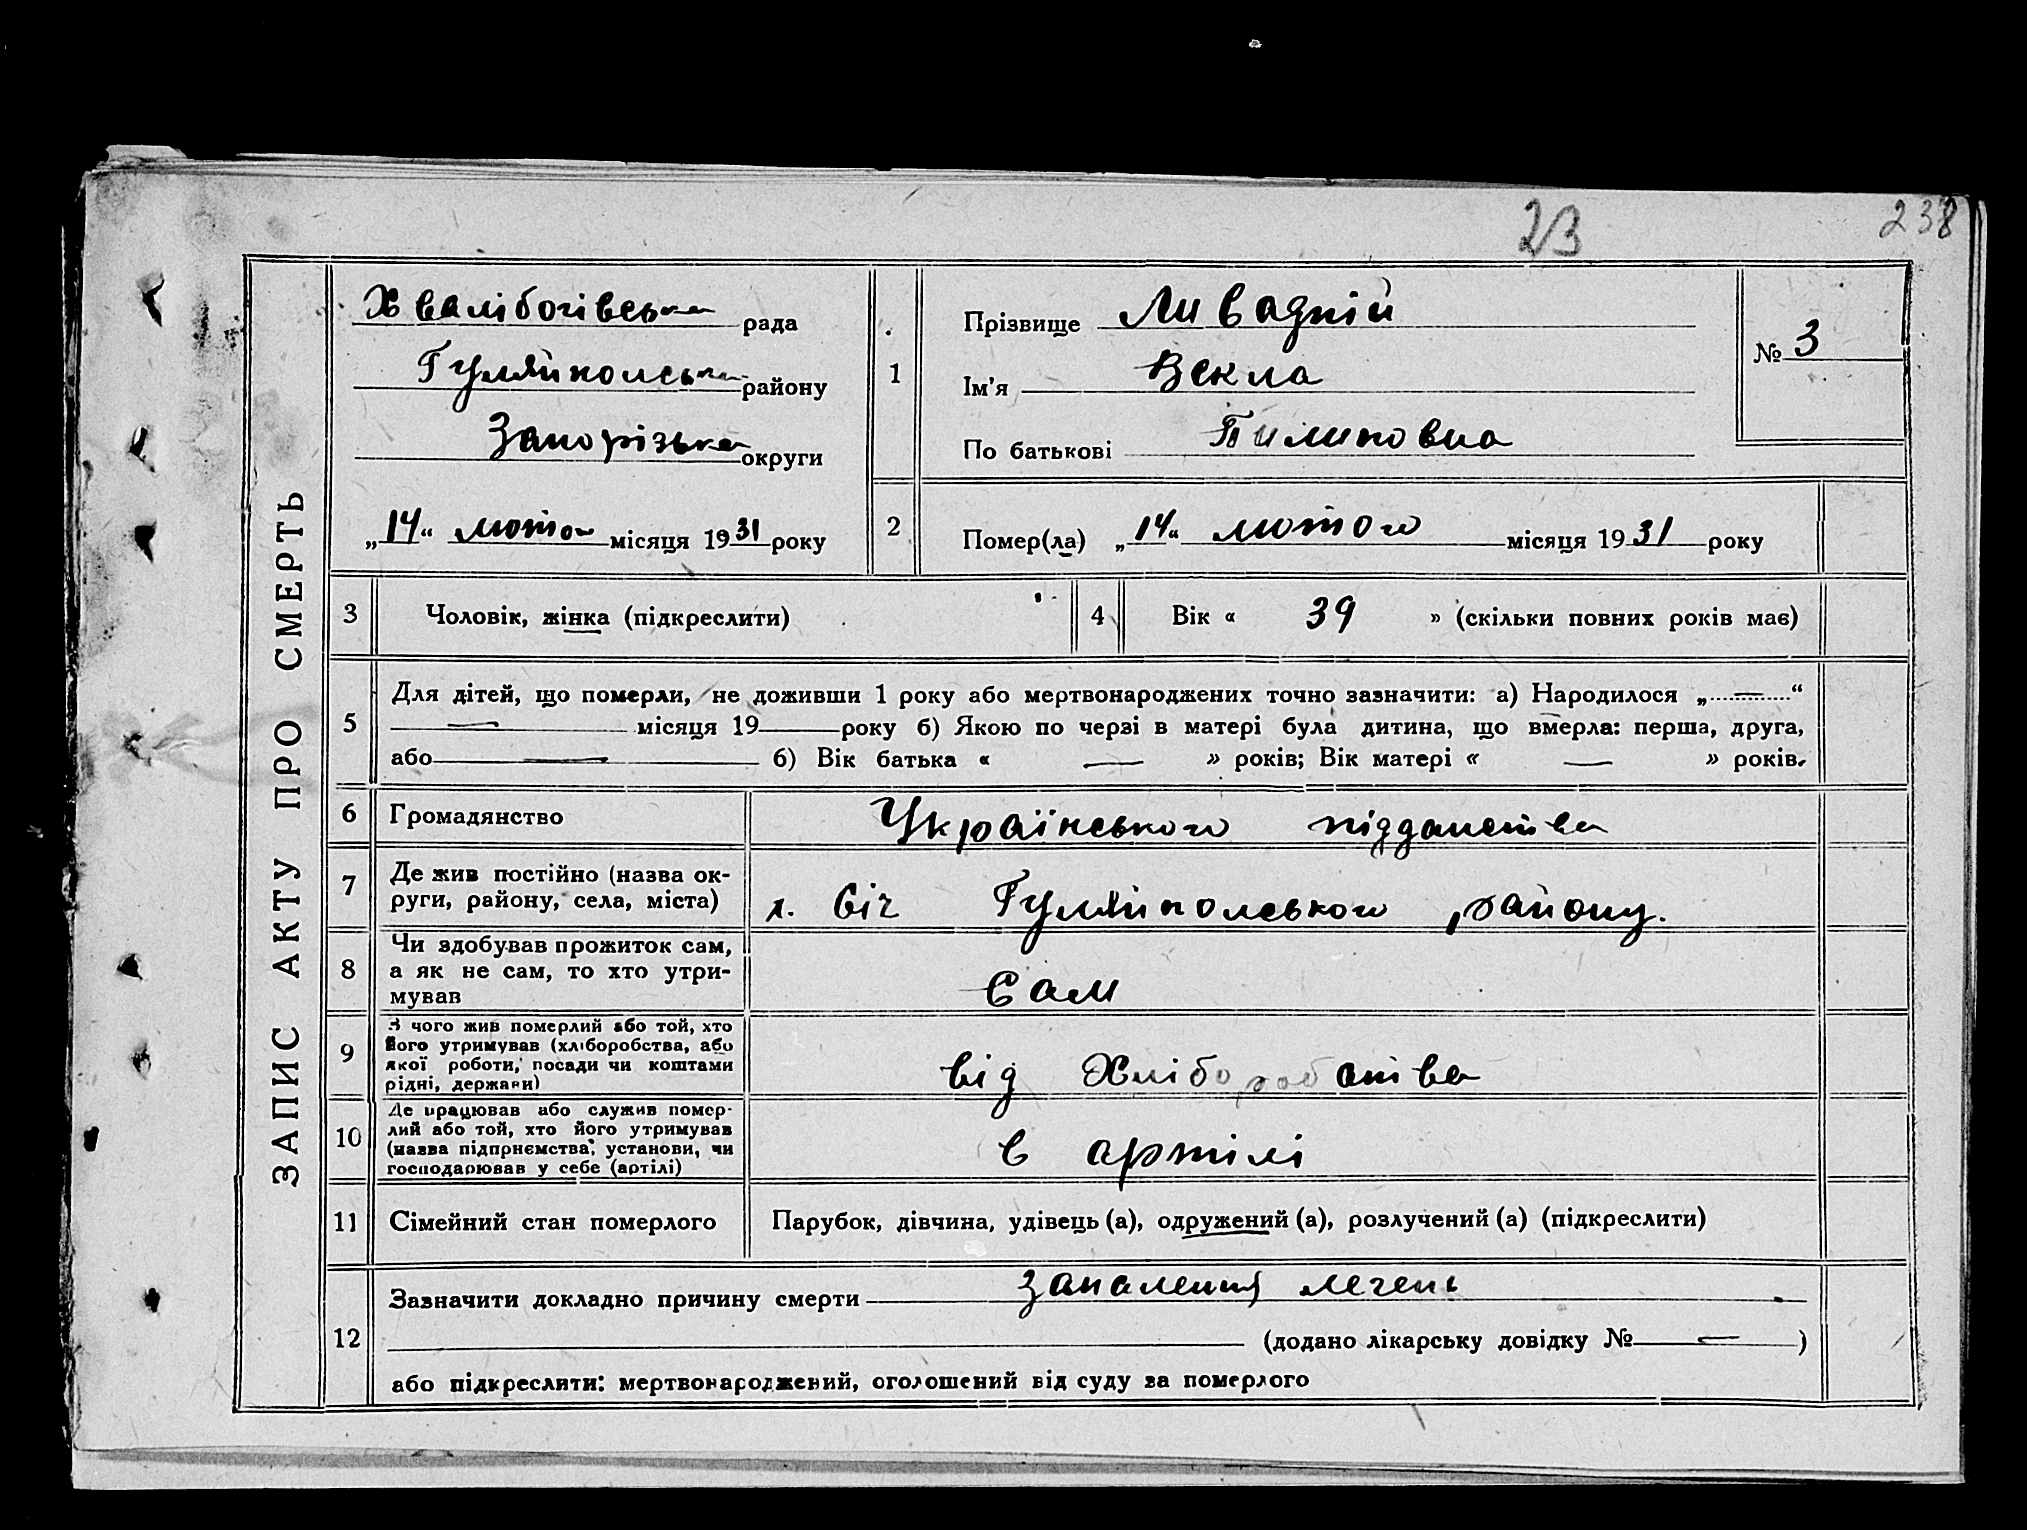 23
238
ЗАПИС АКТУ ПРО СМЕРТЬ
Хвалібогівська рада
Гуляйпольськ району
Запорізька округи
„14“ лютого місяця 1931 року
1
Прізвище Ливадній
Ім'я Векла
По батькові Пилиповна
№ 3
2
Помер(ла) „14“ лютого місяця 1931 року
3 Чоловік, жінка (підкреслити)
4 Вік « 39 » (скільки повних років має)
5
Для дітей, що померли, не доживши 1 року або мертвонароджених точно зазначити: а) Народилося „—“
— місяця 19 року б) Якою по черзі в матері була дитина, що вмерла: перша, друга,
або — б) Вік батька « — » років; Вік матері « — » років.
6 Громадянство Українського підданства
7
Де жив постійно (назва ок-
руги, району, села, міста)
х. Січ Гуляйпольського району.
8
Чи здобував прожиток сам,
а як не сам, то хто утри-
мував
Сам
9
З чого жив померлий або той, хто
його утримував (хліборобства, або
якої роботи, посади чи коштами
рідні, держави)
від Хліборобства
10
Де працював або служив помер-
лий або той, хто його утримував
(назва підприємства, установи, чи
господарював у себе (артілі)
в артілі
11 Сімейний стан померлого
Парубок, дівчина, удівець (а), одружений (а), розлучений (а) (підкреслити)
12
Зазначити докладно причину смерти запалення легень
(додано лікарську довідку № — )
або підкреслити: мертвонароджений, оголошений від суду за померлого